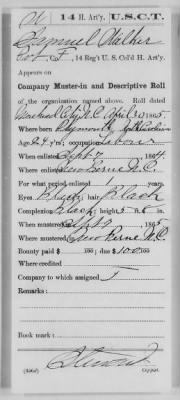 14 H. Art'y. U.S.C.T.
Samuel Walker
Pvt, Co. I, 14 Reg't U. S. Col'd H. Art'y.
Appears on
Company Muster-in and Descriptive Roll
of the organization named above. Roll dated
Morehead City N.C. April 30 1865.
Where born Plymouth, North Carolina
Age 24 y'rs; occupation Laborer
When enlisted Sept 7, 1864.
Where enlisted New Berne N.C.
For what period enlisted 1 years.
Eyes Black; hair Black
Complexion Black; height 5 ft. 5 in.
When mustered in Sept 9, 186
Where mustered in New Berne N.C.
Bounty paid $ 100; due $ 100 100
Where credited
Company to which assigned I
Remarks:
Book mark:
Stewart
Copyist.